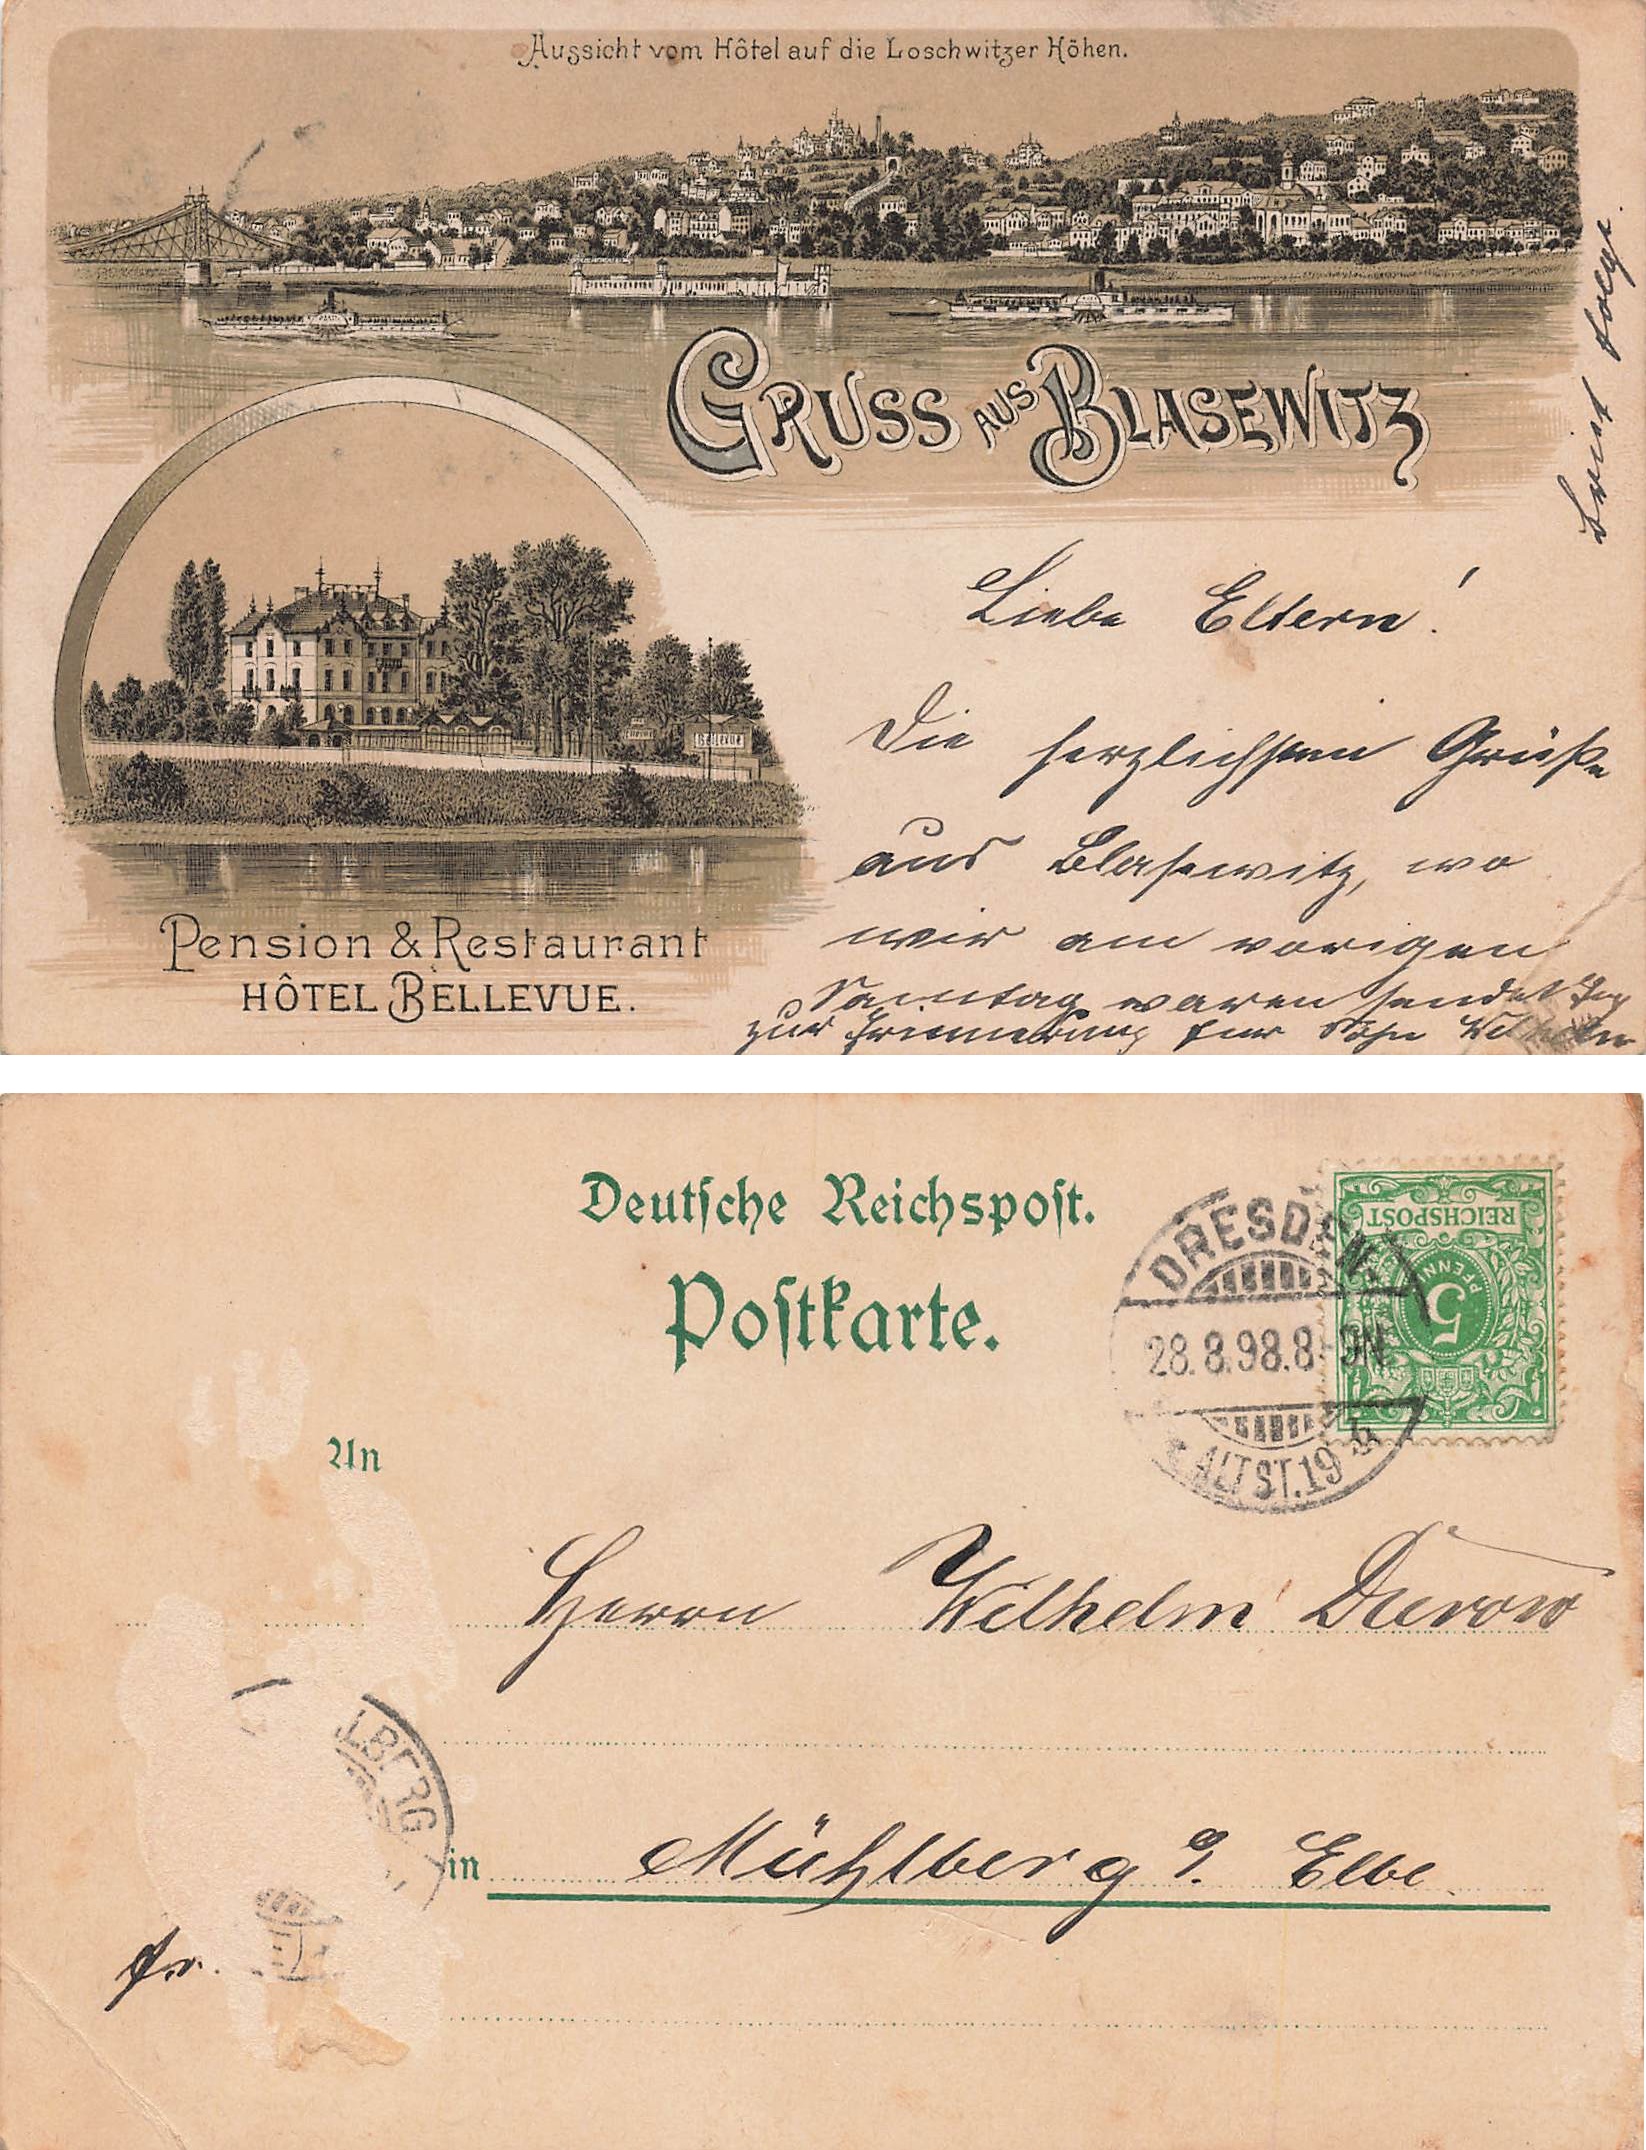 Aussicht vom Hôtel auf die Loschwitzer Höhen.
GRUSS AUS BLASEWITZ
Bellevue
Pension & Restaurant
HÔTEL BELLEVUE.
Liebe Eltern!
Die herzlichsten Grüße
aus Blasewitz, wo
wir am vorigen
Sonntag waren sendet
zur Erinnerung Euer Sohn Wilhelm
Brief folgt.
Deutsche Reichspost.
Postkarte.
REICHSPOST
5
PFENNIG
DRESDEN
28.8.98.8-9N
ALTST.19
An
Herrn Wilhelm
LBERG
in Mühlberg a. Elbe
fr.